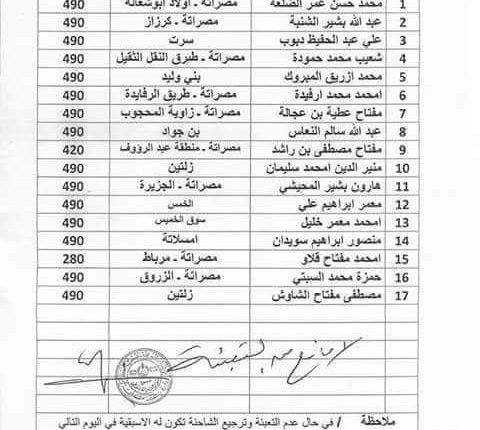 1 محمد حسن عمر الضلعة مصراتة - اولاد ابوشعالة 490
2 عبد الله بشير الشنبة مصراتة - كرزاز 490
3 علي عبد الحفيظ دبوب سرت 490
4 شعيب محمد حمودة مصراتة - طبرق النقل الثقيل 490
5 محمد ازريق المبروك بني وليد 490
6 امحمد محمد ارفيدة مصراتة - طريق الرفايدة 490
7 مفتاح عطية بن عجالة مصراتة - زاوية المحجوب 490
8 عبد الله سالم النعاس بن جواد 490
9 مفتاح مصطفى بن راشد مصراتة - منطقة عبد الرؤوف 420
10 منير الدين امحمد سليمان زلتين 490
11 هارون بشير المحيشي مصراتة - الجزيرة 490
12 معمر ابراهيم علي الخمس 490
13 امحمد معمر خليل سوق الخميس 490
14 منصور ابراهيم سويدان امسلاتة 490
15 امحمد مفتاح قلاو مصراتة - مرباط 280
16 حمزة محمد السبتي مصراتة - الزروق 490
17 مصطفى مفتاح الشاوش زلتين 490
لا مانع من التعبئة
ملاحظة / في حال عدم التعبئة وترجيع الشاحنة تكون له الاسبقية في اليوم التالي